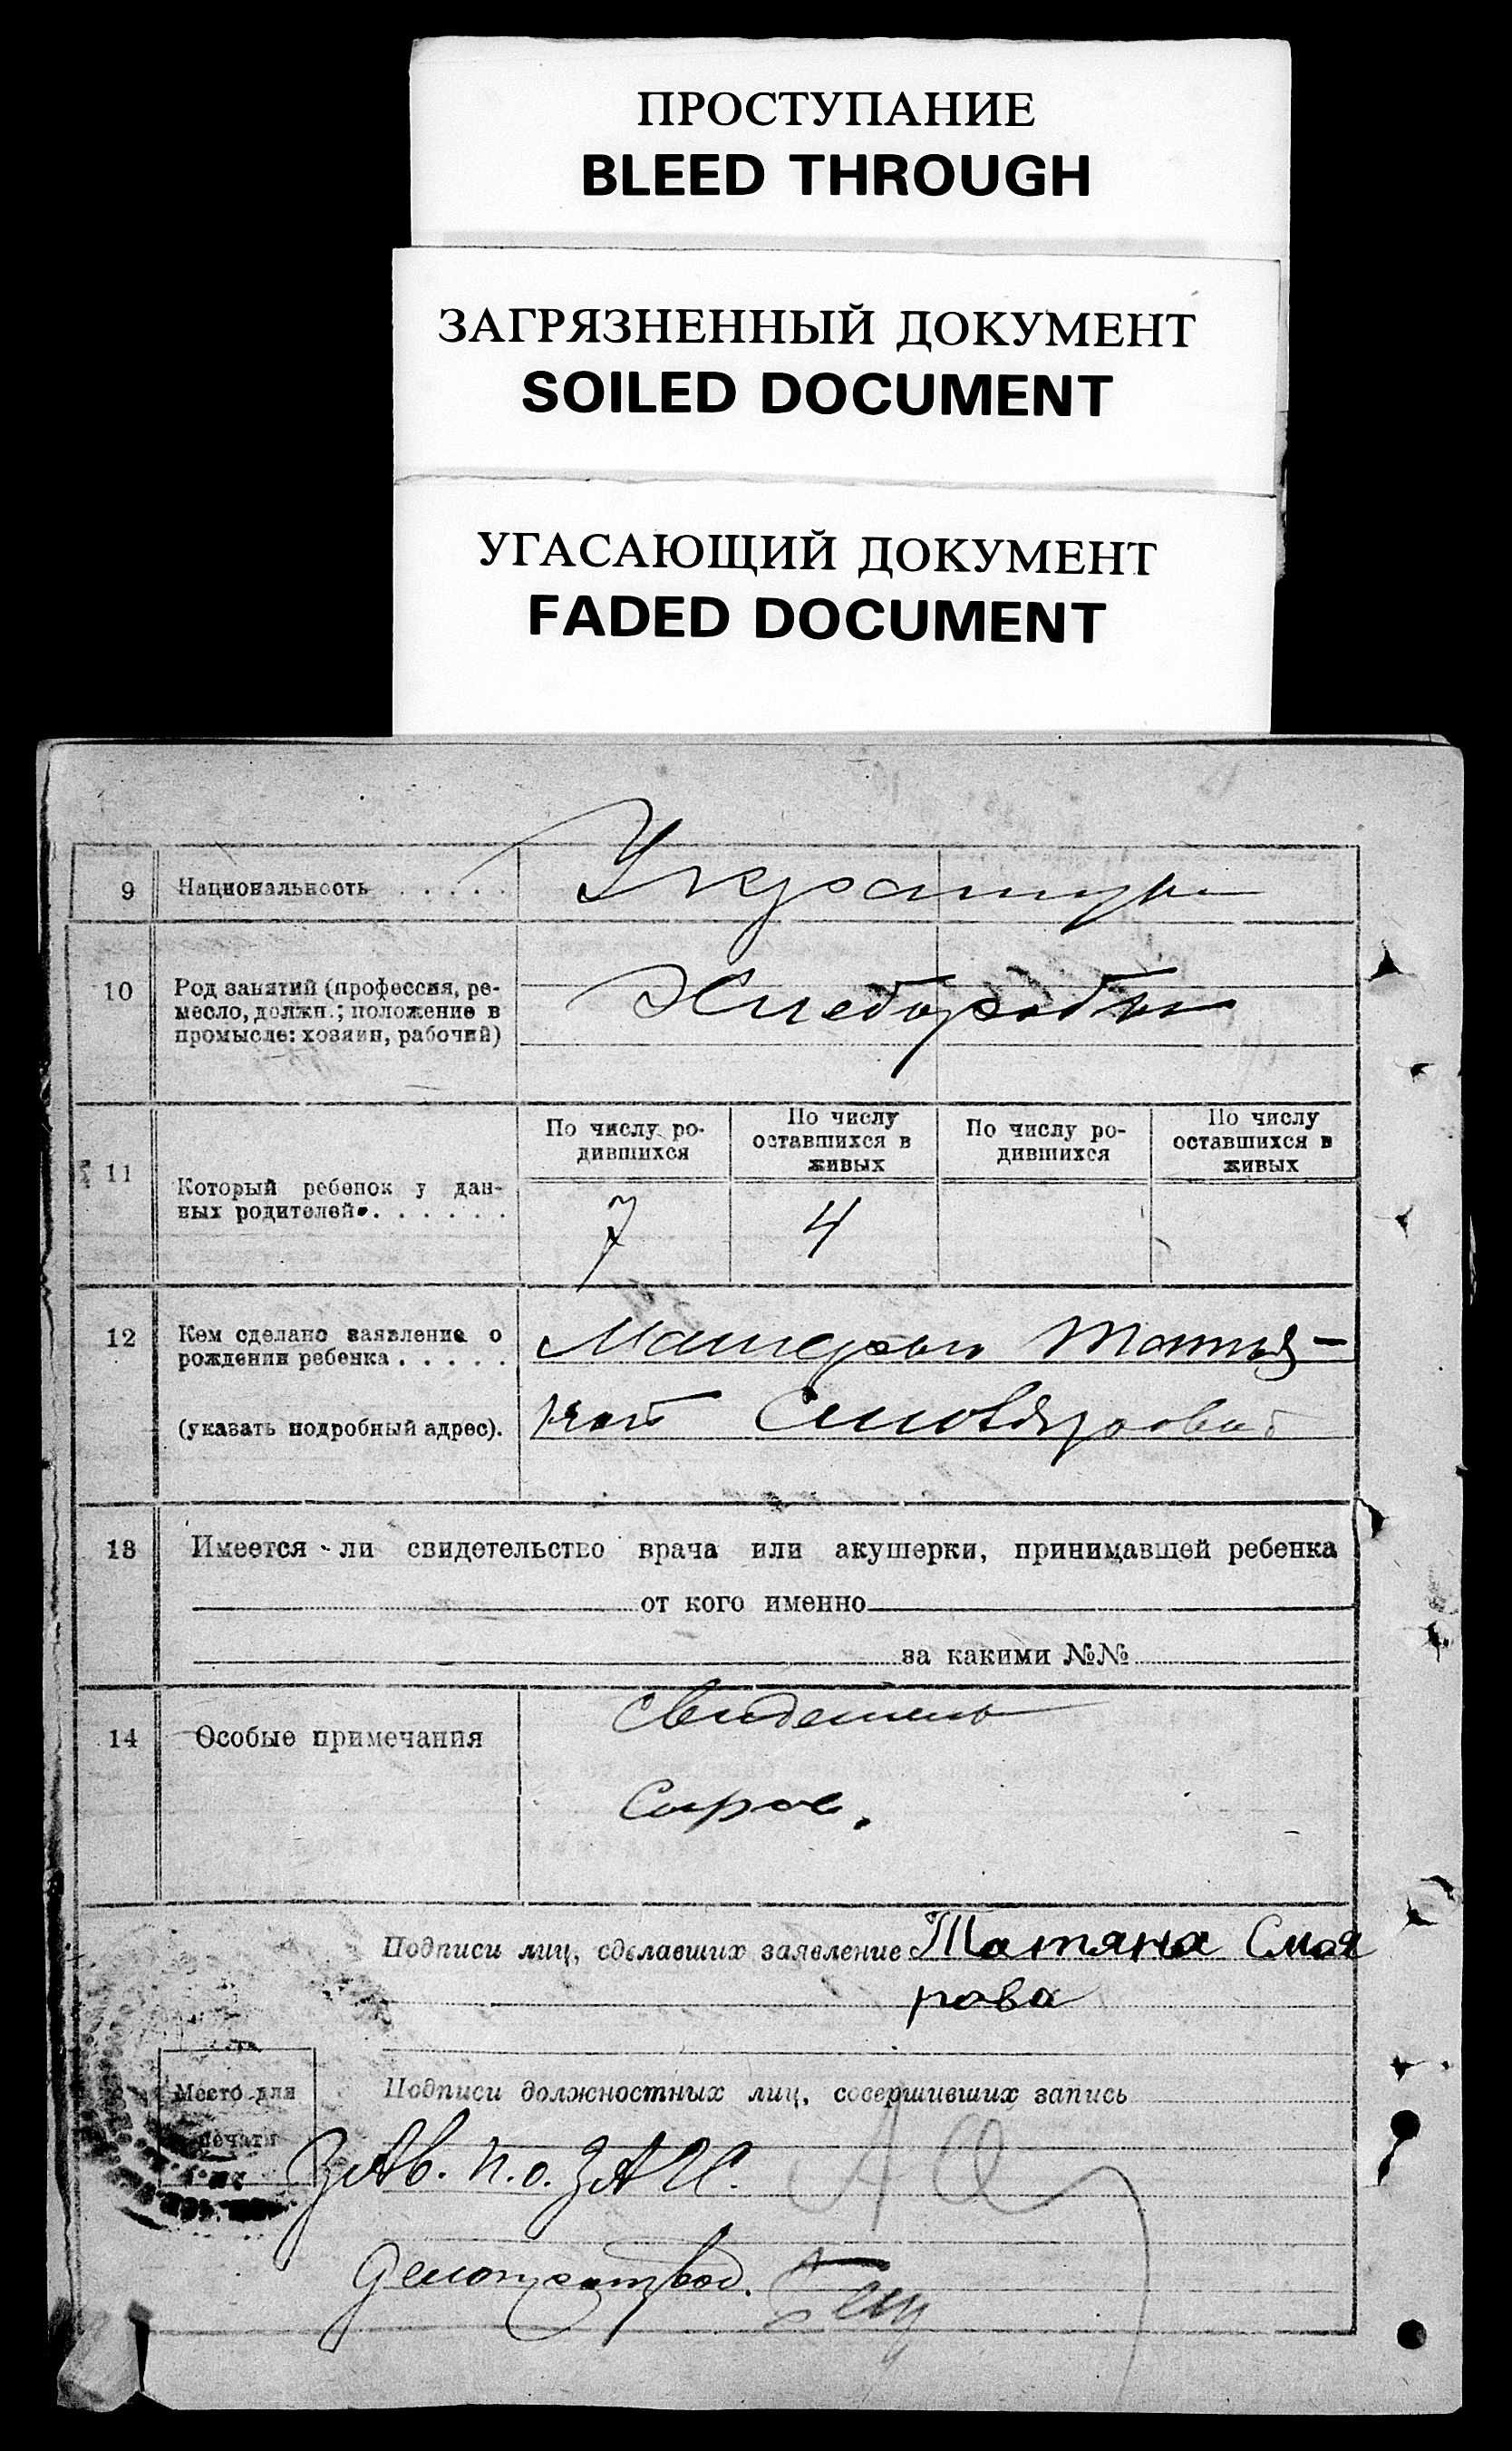 ПРОСТУПАНИЕ
BLEED THROUGH
ЗАГРЯЗНЕННЫЙ ДОКУМЕНТ
SOILED DOCUMENT
УГАСАЮЩИЙ ДОКУМЕНТ
FADED DOCUMENT
9 Национальность . . . . .
10 Род занятий (профессия, ре-
месло, должн.; положение в
промысле: хозяин, рабочий)
Хлеборобы
11 Который ребенок у дан-
ных родителей . . . . . .
По числу ро-
дившихся
По числу
оставшихся в
живых
По числу ро-
дившихся
По числу
оставшихся в
живых
7 4
12 Кем сделано заявление о
рождении ребенка . . . . .
(указать подробный адрес).
Матерью Татья-
ной
13 Имеется ли свидетельство врача или акушерки, принимавшей ребенка
от кого именно
за какими №№
14 Особые примечания
свидетель
Подписи лиц, сделавших заявление Татяна Смоя
рова
Место для
печати
Подписи должностных лиц, совершивших запись
Зав. п.о. ЗАГС.
Делопроизвод.